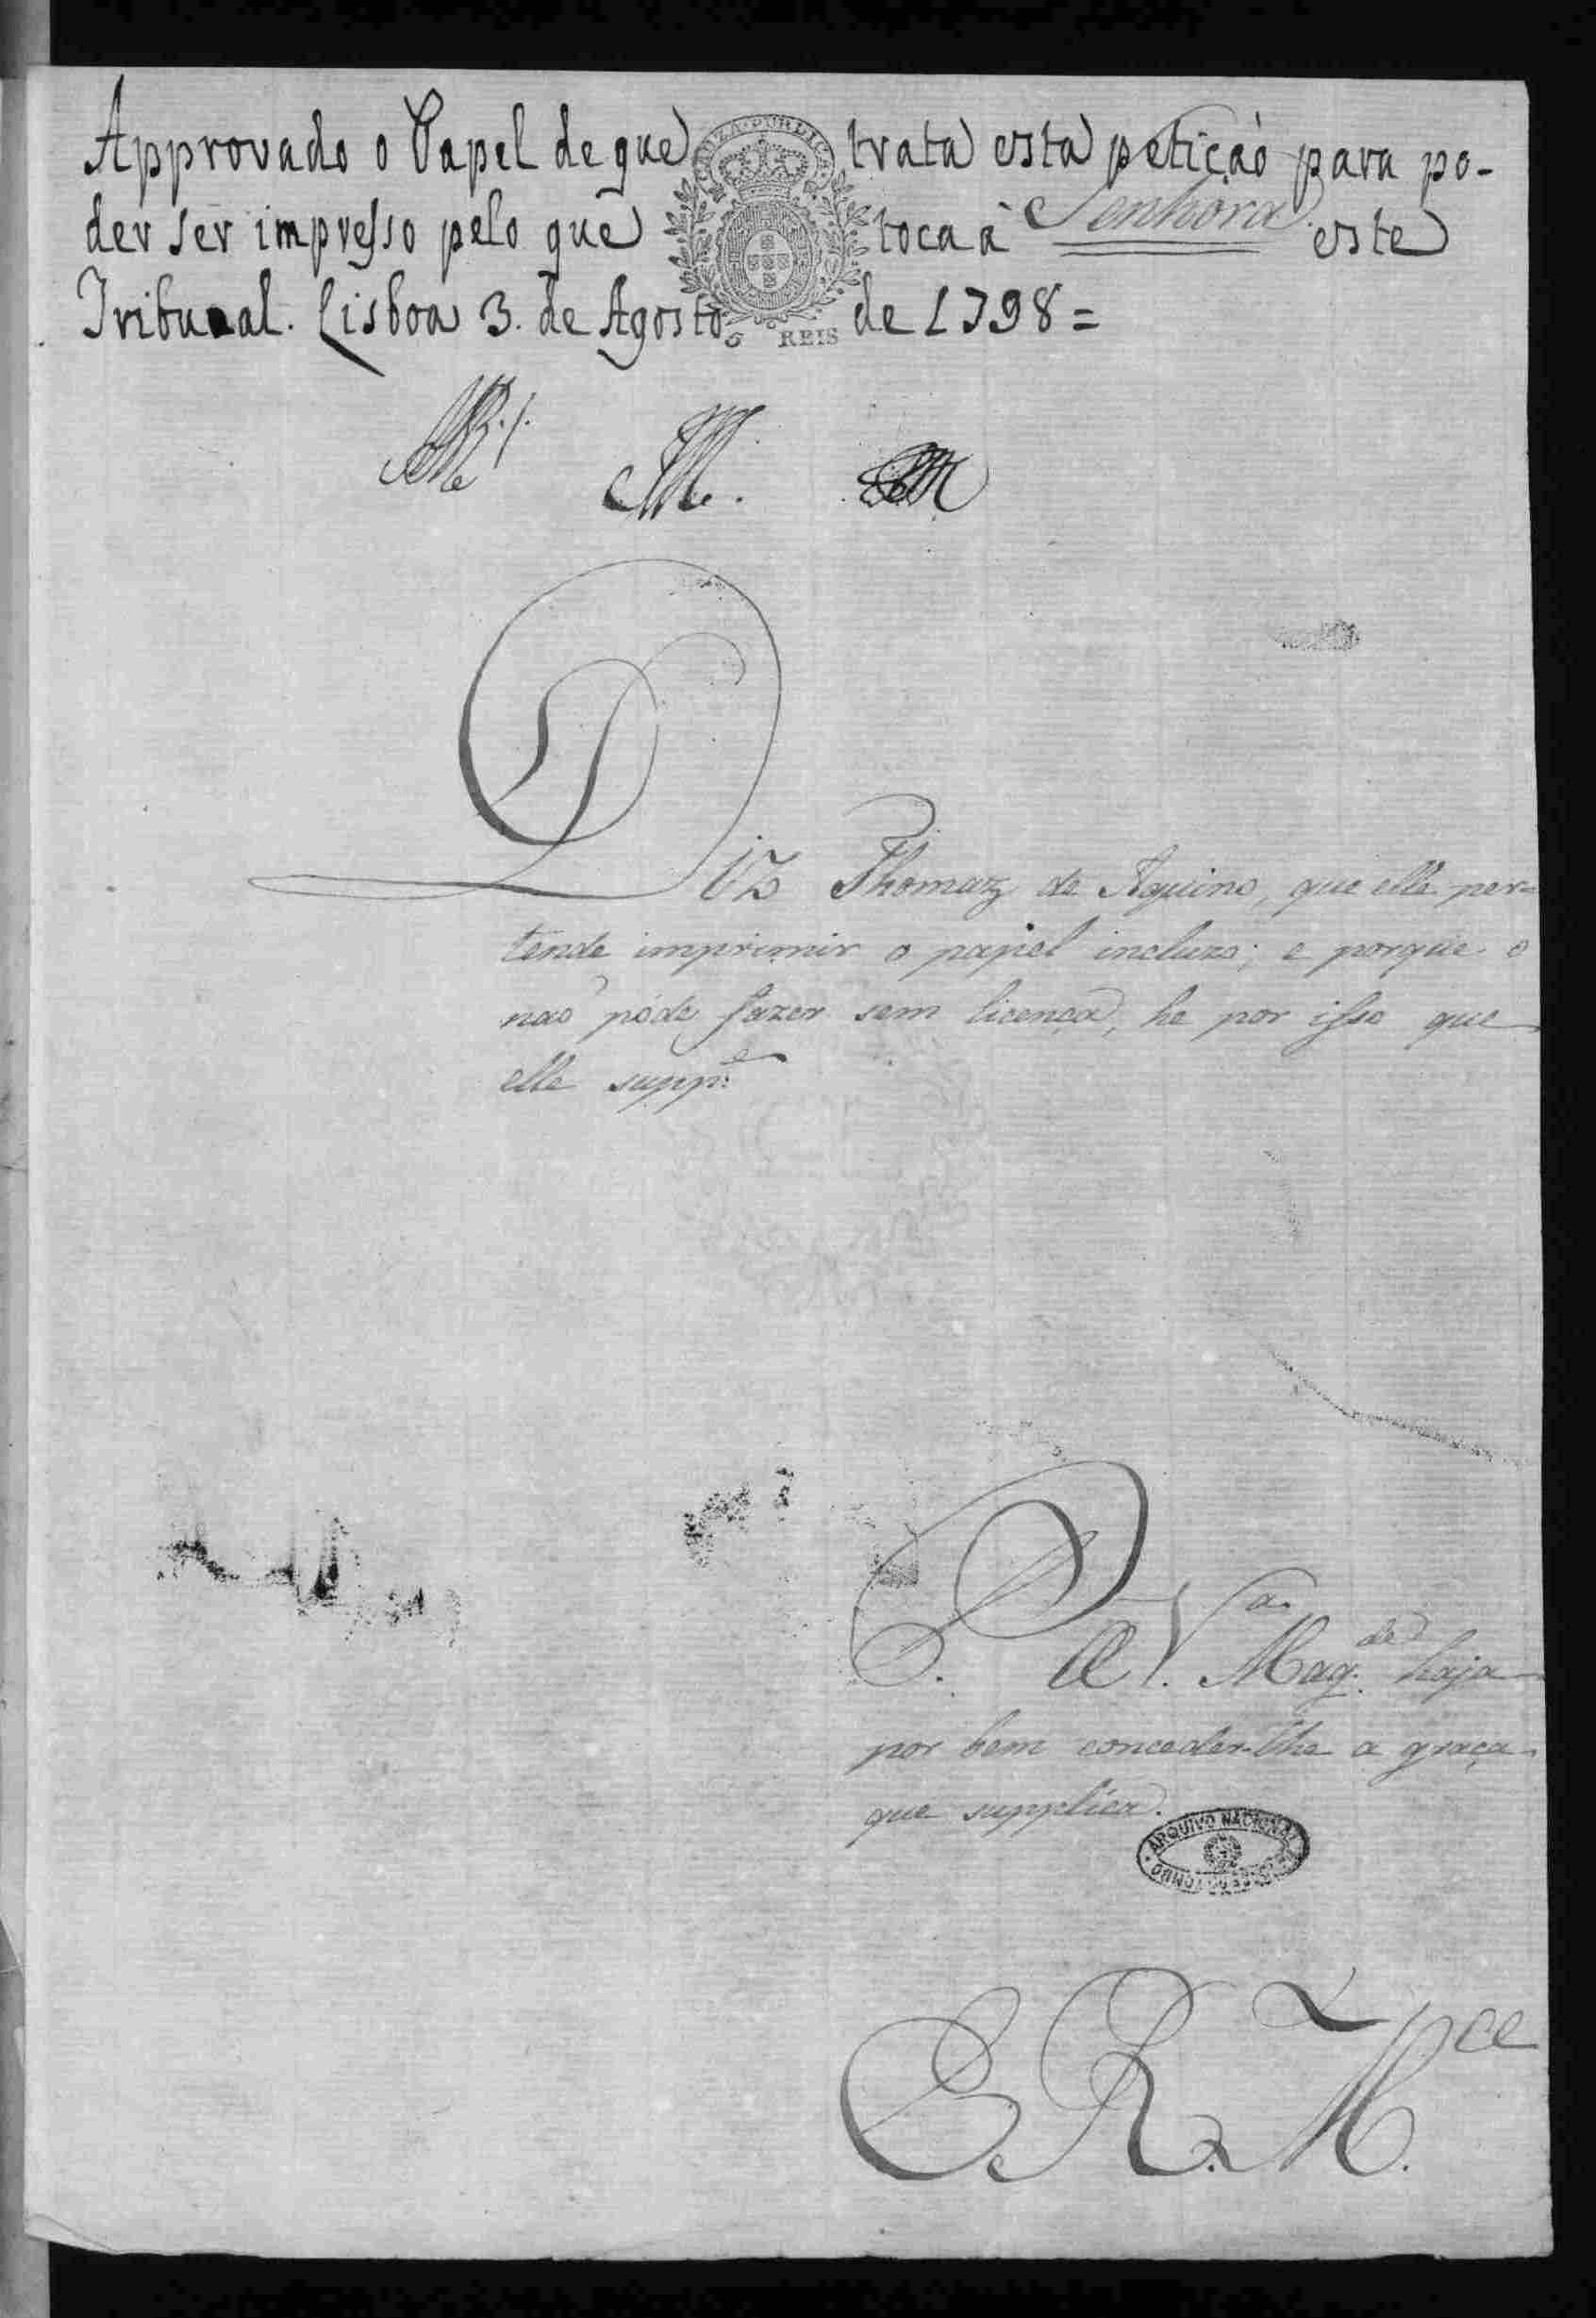 Approvado o Papel de que trata esta petiçaõ para po-
der ser impresso pelo que toca à este
Senhora
Tribunal. Lisboa 3. de Agosto de 1798=
CAUZA PUBLICA
REIS
Diz Thomaz de Aquino, que elle per=
tende imprimir o papel incluzo; e porque o
naõ póde fazer sem licença, he por isso que
elle supp.e
P. a V.a Mag.de haja
por bem conceder-lhe a graça
que supplíca.
ARQUIVO NACIONAL
TORRE DO TOMBO
E. R. M.ce